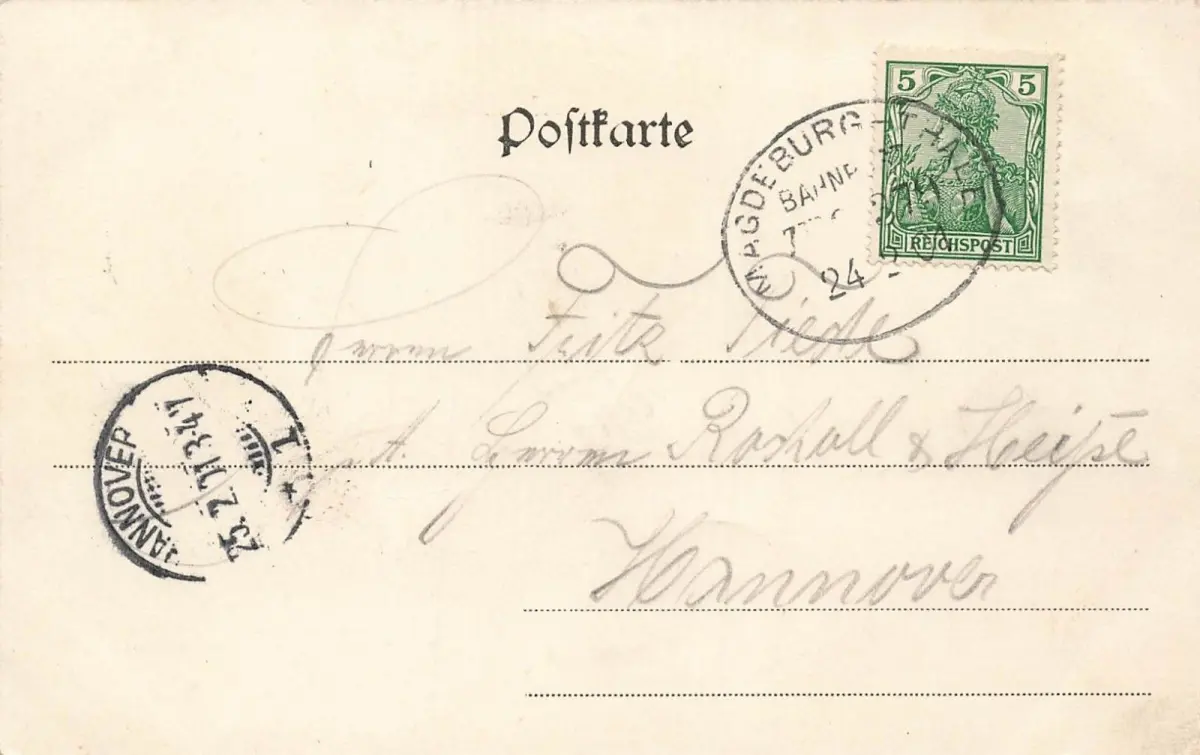 Postkarte
5 5
REICHSPOST
MAGDEBURG-THALE
BAHNP
24 2 01
Herrn Fritz Tiede
Herrn & Heiße
Hannover
HANNOVER 1
25.2.01 3-4N